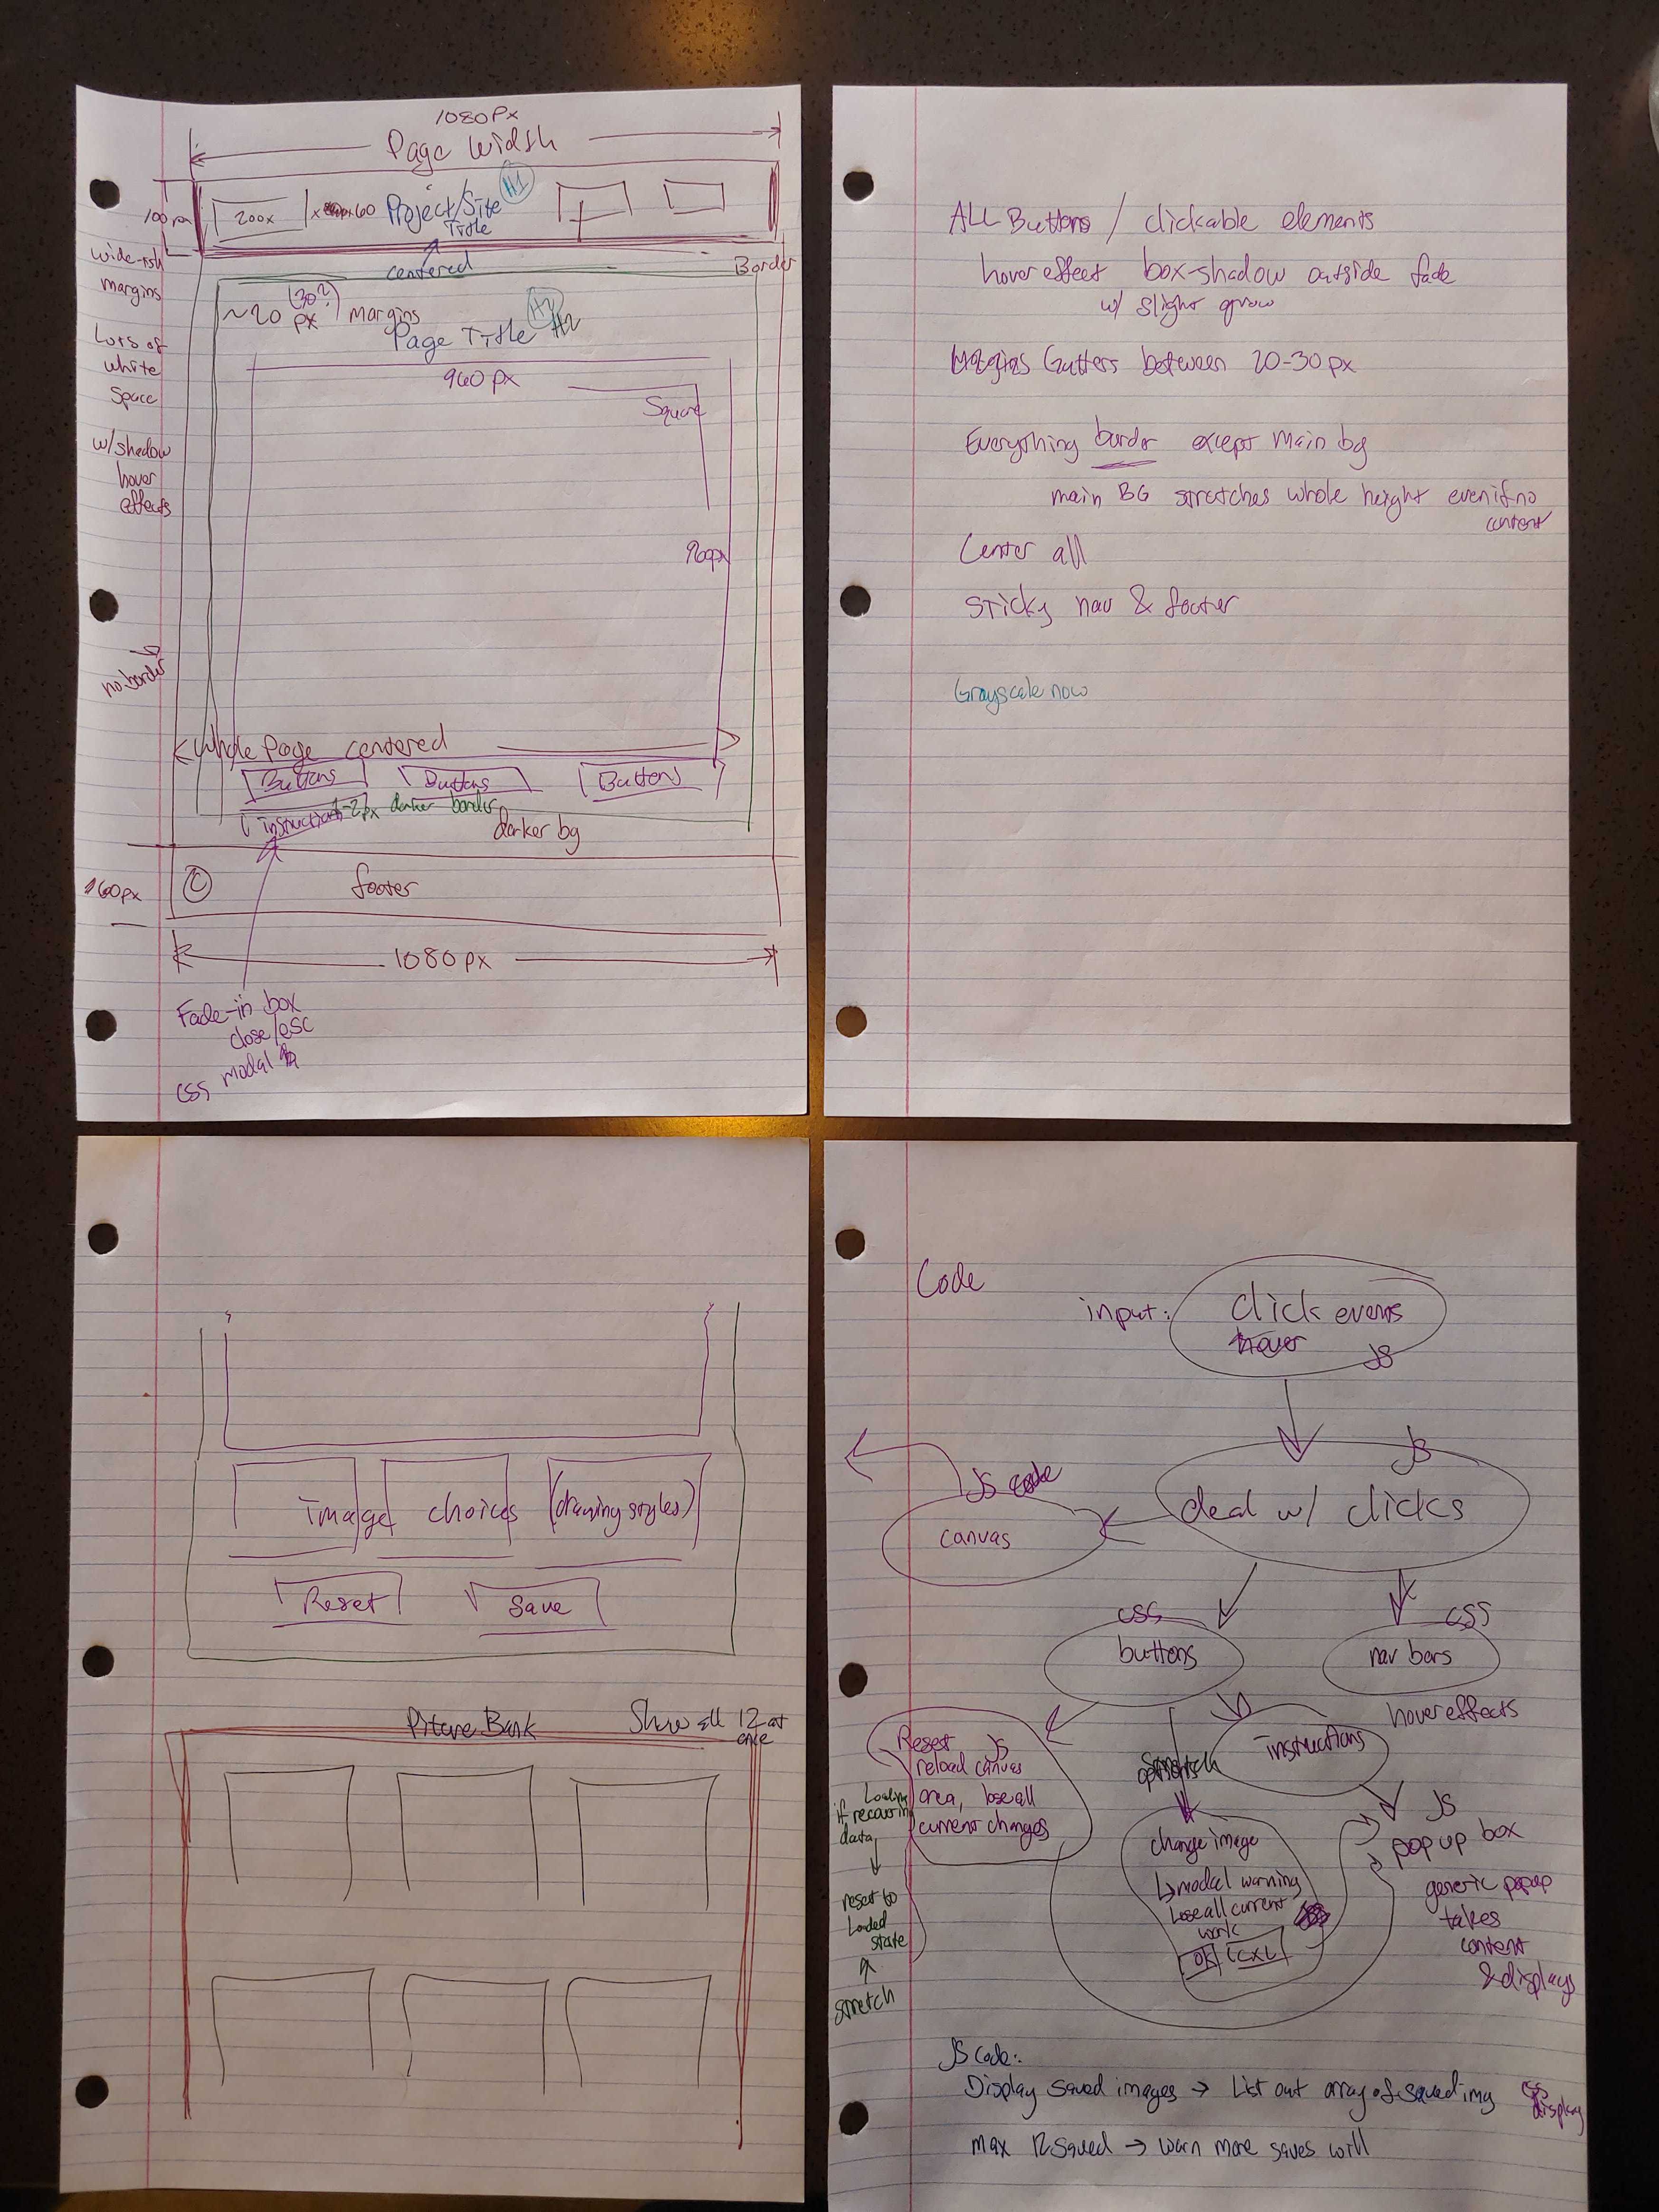 1080px
Page Width
100px
200x
x 60
Project/Site
Title
H1
centered
Border
wide-ish
margins
Lots of
white
space
w/shadow
hover
effects
no border
~20 (30?)
px margins
Page Title H2
H2
960 px
Square
900px
Whole Page centered
Buttons Buttons Buttons
instructions
1-2px darker border
darker bg
160px
© footer
1080 px
Fade-in box
close/esc
CSS modal
ALL Buttons / clickable elements
hover effect box-shadow outside fade
w/ slight grow
Gutters between 20-30 px
Everything border except main bg
main BG stretches whole height even if no
content
Center all
Sticky nav & footer
Grayscale now
image choices (drawing styles)
Reset Save
Picture Bank
Show all 12 at
once
Code
input: click events
hover
JS
JS
deal w/ clicks
JS code
canvas
CSS
buttons
CSS
nav bars
hover effects
Reset JS
reload canvas
area, lose all
current changes
Loading
if recovering
data
reset to
Loaded
state
stretch
instructions
change image
modal warning
Lose all current
work
OK CXL
JS
pop up box
generic popup
takes
content
& displays
JS code:
Display saved images → List out array of saved img
CSS
display
max 12 saved → warn more saves will